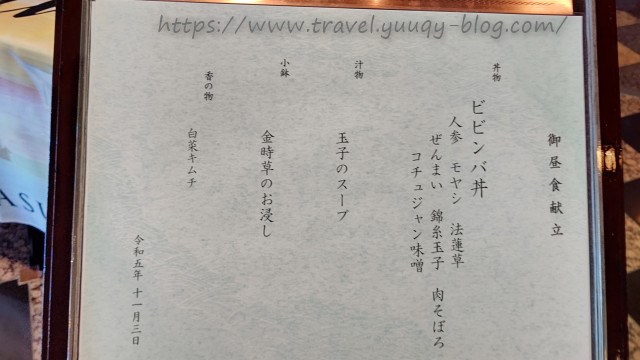 https://www.travel.yuuqy-blog.com/
御昼食献立
丼物
ビビンバ丼
人参　モヤシ　法蓮草
ぜんまい　錦糸玉子　肉そぼろ
コチュジャン味噌
汁物
玉子のスープ
小鉢
金時草のお浸し
香の物
白菜キムチ
令和五年　十一月三日